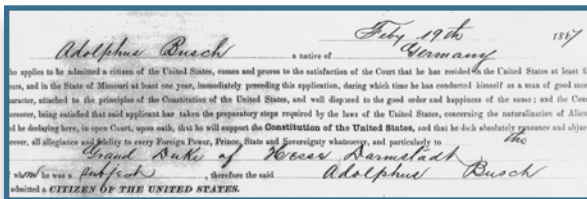 Feby 19th 1867
Adolphus Busch a native of Germany
ho applies to be admitted a citizen of the United States, comes and proves to the satisfaction of the Court that he has resided in the United States at least fi
ears, and in the State of Missouri at least one year, immediately preceding this application, during which time he has conducted himself as a man of good mor
haracter, attached to the principles of the Constitution of the United States, and well disposed to the good order and happiness of the same; and the Cou
oreover, being satisfied that said applicant has taken the preparatory steps required by the laws of the United States, concerning the naturalization of Alien
nd he declaring here, in open Court, upon oath, that he will support the Constitution of the United States, and that he doth absolutely renounce and abjur
orever, all allegiance and fidelity to every Foreign Power, Prince, State and Sovereignty whatsoever, and particularly to the
Grand Duke of Hesse Darmstadt
f whom he was a subject, therefore the said Adolphus Busch
admitted a CITIZEN OF THE UNITED STATES.